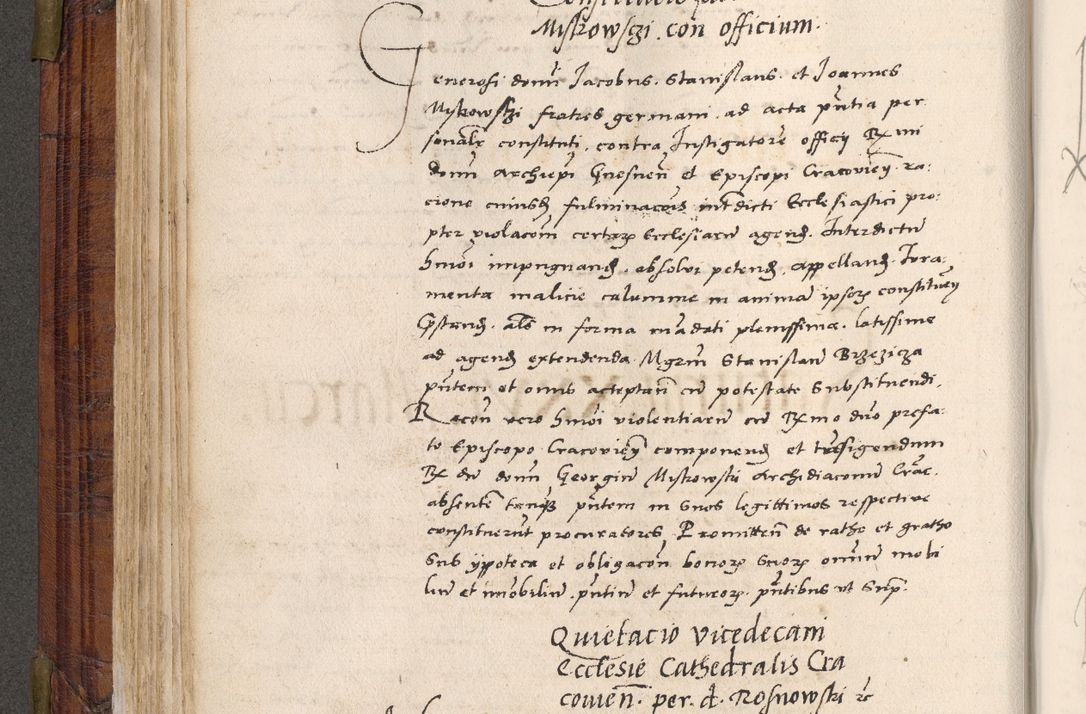 Mistrowszi . con officium .
Generosi domi Jacobus . Stanislaus . et Joannes
Mistrowszi fratres germani . ad acta pntia per
sonalr constituti . contra Instigatore officij Rmi
domi Archiepi Gnesnen et Episcopi Cracovien . ra-
cione cuiusd fulminacois intdicti Ecclesiastici pro-
pter violacom certar ecclesiaru agend . Interdictu
hmoi impugnand . absolvi petend . appelland . Jura-
menta malicie calumnie in anima ipsor constituen
pstand . als in forma madati plenissima . latissime
ad agend extendenda . Mgrm Stanislau Brzeziza
pntem et onus acceptan cu potestate substituendi .
Racon vero hmoi violentiaru cu Rmo dno prefa-
to Episcopo Cracovien componend et transigendum
R du domi Georgiu Mistrowski Archidiaconu Crac .
absente tanq pntem in suos legittimos respective
constituerut procuratores . Promitten de ratho et gratho
sub yppoteca et obligacon bonor suor omniu mobi
liu et imobiliu . pntiu et futuror . pntibus ut sup .
Quietacio vicedecani
Ecclesie Cathedralis Cra
covien . per . d . Rosnowski rc